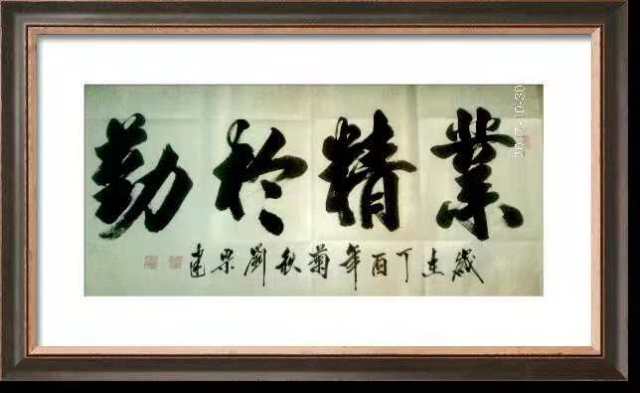 業精於勤
歲在丁酉年菊秋劉建
2017-10-30